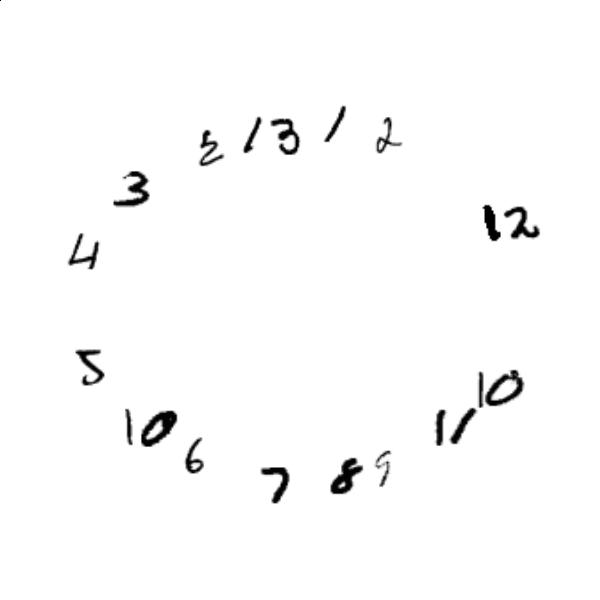 2
13
1
2
3
12
4
5
10
10
11
6
7
8
9